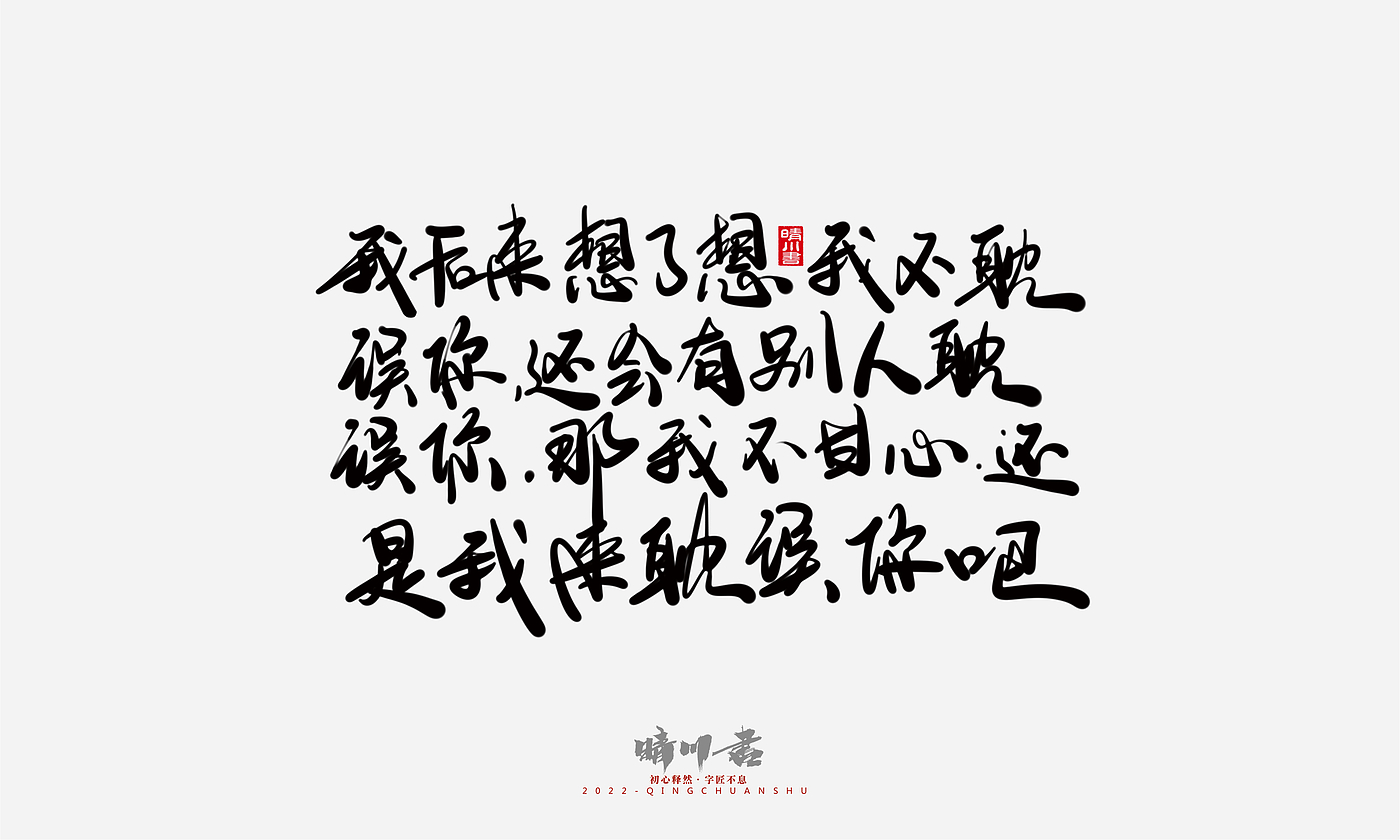 我后来想了想 我不耽
晴川書
误你,还会有别人耽
误你.那我不甘心.还
是我来耽误你吧
晴川书
初心释然·字匠不息
2022-QINGCHUANSHU